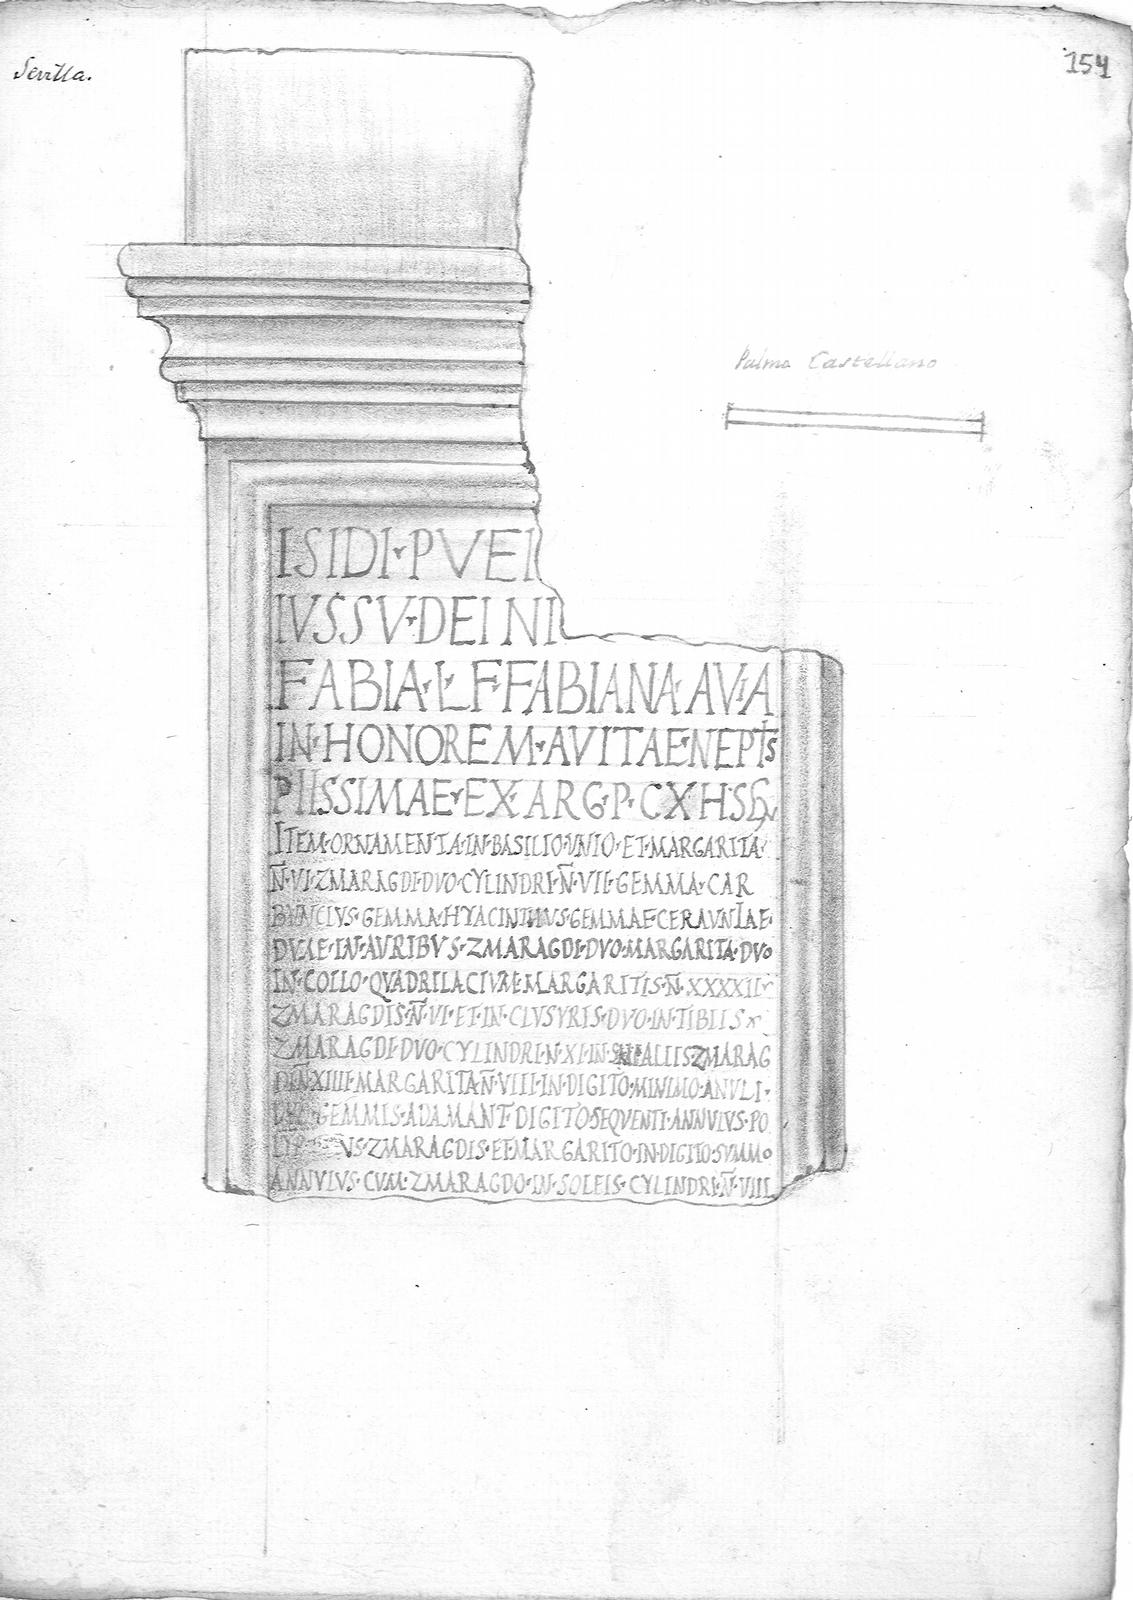 Sevilla.
154
Palmo Castellano
ISIDI·PVEL
IVSSV·DEI NE
FABIA·L·F·FABIANA·AVIA
IN·HONOREM·AVITAE·NEPTIS
PIISSIMAE·EX·ARG·P·CXIIS
ITEM·ORNAMENTA·IN·BASILIO·VNIO·ET·MARGARITA
N̄·VI·ZMARAGDI·DVO·CYLINDRI·N̄·VII·GEMMA·CAR
BVNCLVS·GEMMA·HYACINTHVS·GEMMAE·CERAVNIAE·
DVAE·IN·AVRIBVS·ZMARAGDI·DVO·MARGARITA·DVO
IN·COLLO·QVADRILACIVM·MARGARITIS·N̄·XXXXII
ZMARAGDIS·N̄·VI·ET·IN·CLVSVRIS·DVO·IN·TIBIIS
ZMARAGDI·DVO·CYLINDRI·N·XI·IN ZMARAG
DI·N̄·XIIII·MARGARITA·N̄·VIII·IN·DIGITO·MINIMO·ANVLI·
GEMMIS·ADAMANT·DIGITO·SEQVENTI·ANNVLVS·PO
VS·ZMARAGDIS·ET·MARGARITO·IN·DIGITO·SVMMO
ANNVLVS·CVM·ZMARAGDO·IN·SOLEIS·CYLINDRI·N̄·VIII